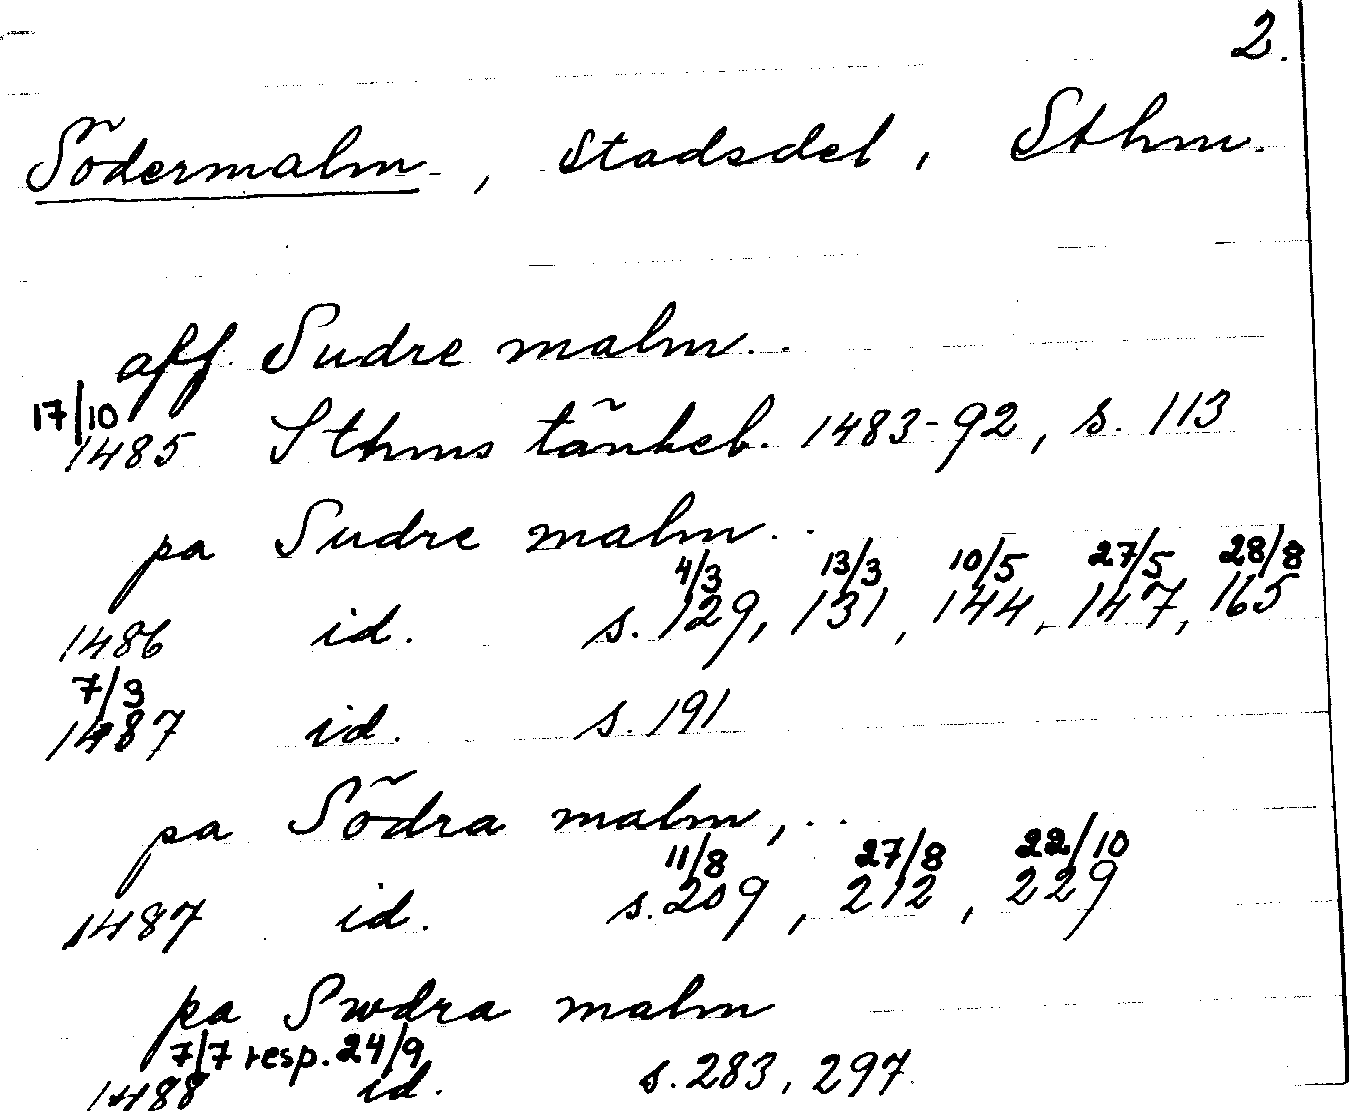 2.
Södermalm, stadsdel, Sthm.
aff Sudre malm..
17/10
1485 Sthms tänkeb. 1483-92, s. 113
pa Sudre malm..
4/3 13/3 10/5 27/5 28/8
1486 id. s. 129, 131, 144, 147, 165
7/3
1487 id. s. 191
pa Södra malm,..
11/8 27/8 22/10
1487 id. s. 209, 212, 229
pa Swdra malm
7/7 resp. 24/9
1488 id. s. 283, 297